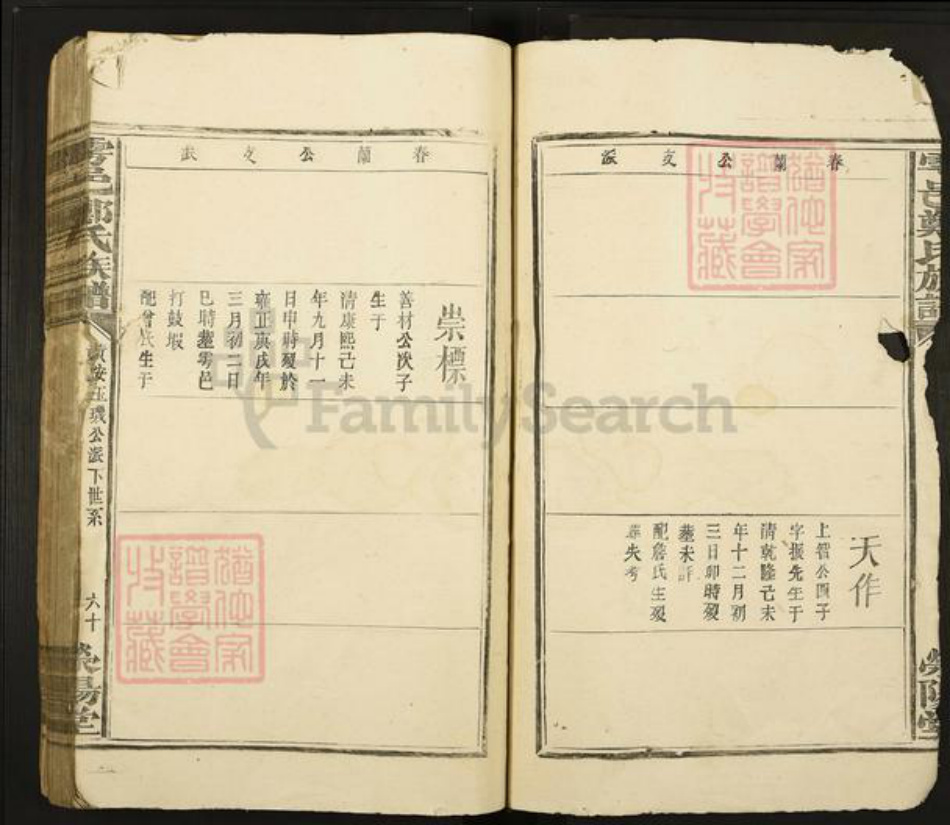 春蘭公支派
天作
上智公四子
字振先生于
清乾隆己未
年十二月初
三日卯時歿
葬未詳
配詹氏生歿
葬失考
鄭氏族譜
滎陽堂
春蘭公支派
崇標
善材公次子
生于
清康熙己未
年九月十一
日申時歿於
雍正庚戌年
三月初二日
巳時葬雩邑
打鼓塅
配曾氏生于
雩邑鄭氏族譜
公派下世系
六十
滎陽堂
譜學會
收藏
譜學會
收藏
FamilySearch